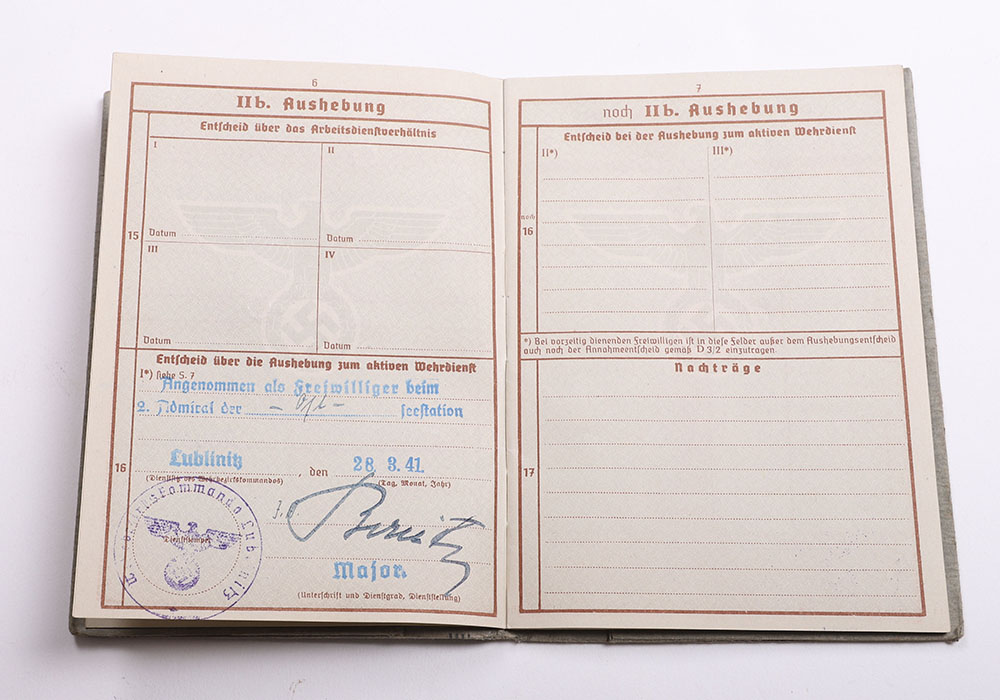 6
IIb. Aushebung
Entscheid über das Arbeitsdienstverhältnis
I
II
15
Datum
Datum
III
IV
Datum
Datum
Entscheid über die Aushebung zum aktiven Wehrdienst
I*) siehe S. 7
Angenommen als Freiwilliger beim
2. Admiral der - - seestation
16
Lublinitz, den 28 3.41.
(Dienstsitz des Wehrbezirkskommandos) (Tag, Monat, Jahr)
Dienststempel
Major.
(Unterschrift und Dienstgrad, Dienststellung)
7
noch IIb. Aushebung
Entscheid bei der Aushebung zum aktiven Wehrdienst
II*)
III*)
noch
16
*) Bei vorzeitig dienenden Freiwilligen ist in diese Felder außer dem Aushebungsentscheid
auch noch der Annahmeentscheid gemäß D 3/2 einzutragen.
Nachträge
17